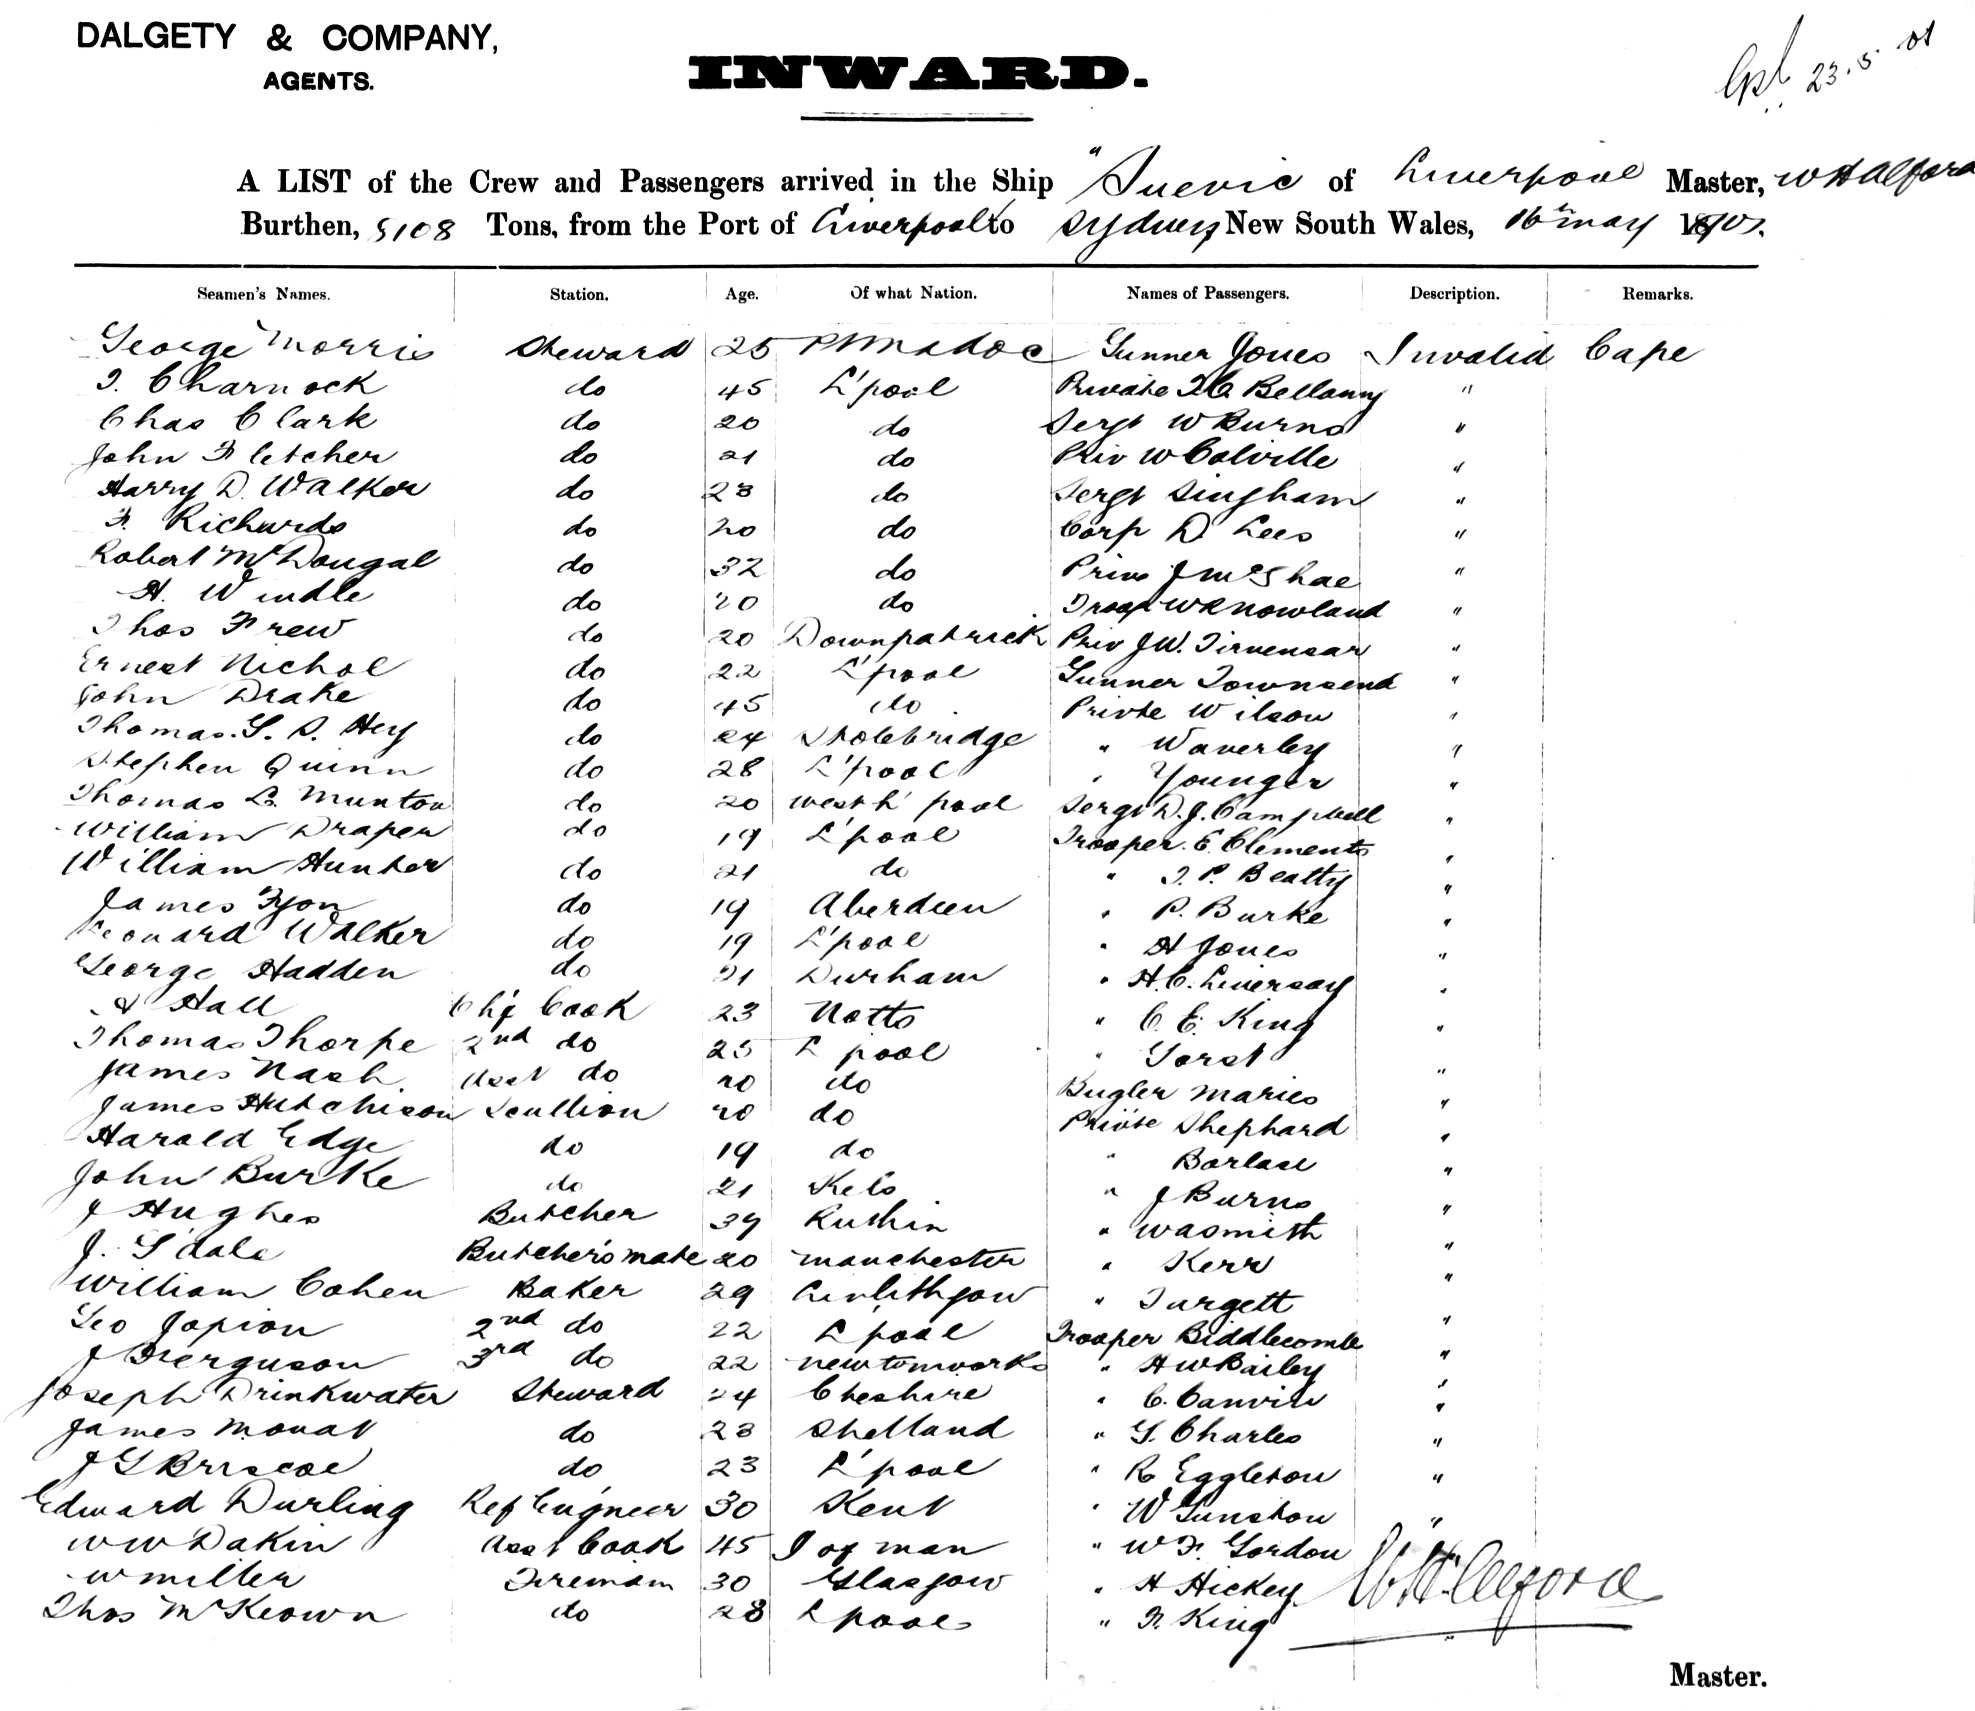 DALGETY & COMPANY,
AGENTS.
INWARD.
23.5.01
A LIST of the Crew and Passengers arrived in the Ship "Suevic of Liverpool Master, W H Alford
Burthen, 8108 Tons, from the Port of Liverpool to Sydney New South Wales, 16th May 1901.
Seamen's Names. Station. Age. Of what Nation. Names of Passengers. Description. Remarks.
George Morris Steward 25 Ptmadoc Gunner Jones Invalid Cape
T. Charnock do 45 L'pool Private Bellamy "
Chas Clark do 20 do Sergt W Burns "
John Fletcher do 21 do Priv W Colville "
Harry D. Walker do 23 do Sergt Singham "
F. Richards do 20 do Corp D Lees "
Robert McDougal do 32 do Priv J McShae "
H. Windle do 20 do Troop W R Nowland "
Thos Frew do 20 Downpatrick Priv J W. "
Ernest Nichol do 22 L'pool Gunner Townsend "
John Drake do 45 do Privte Wilson "
Thomas. G. S. Hey do 24 " Waverley "
Stephen Quinn do 28 L'pool " Younger "
Thomas L. Munton do 20 West h'pool Sergt D. J. Campbell "
William Draper do 19 L'pool Trooper E. Clements "
William Hunter do 21 do " T. P. Beatty "
James Fyon do 19 Aberdeen " P. Burke "
Leonard Walker do 19 L'pool " H Jones "
George Hadden do 21 Durham " H. C. Liversay "
Hall Chf Cook 23 Notts " C. E. King "
Thomas Thorpe 2nd do 25 L'pool " Gorst "
James Nash Asst do 20 do Bugler Maries "
James Hutchison Scullion 20 do Privte Shephard "
Harold Edge do 19 do " Borlase "
John Burke do 21 " J Burns "
J Hughes Butcher 39 Ruthin " Wasmith "
J. G'dale Butcher's mate 20 Manchester " Kerr "
William Cohen Baker 29 Linlithgow " Turgett "
Geo Jopion 2nd do 22 L'pool Trooper Biddlecombe "
J Ferguson 3rd do 22 " H W Bailey "
Joseph Drinkwater Steward 24 Cheshire " C. Canvin "
James Mouat do 23 Shetland " G. Charles "
J G Briscoe do 23 L'pool " R Eggleton "
Edward Durling Ref Engineer 30 Kent " W Gunston "
W W Dakin Asst Cook 45 I of man " W F. Gordon
W Miller Fireman 30 Glasgow " H Hickey
Thos McKeown do 28 L'pool " F. King "
W H Alford
Master.